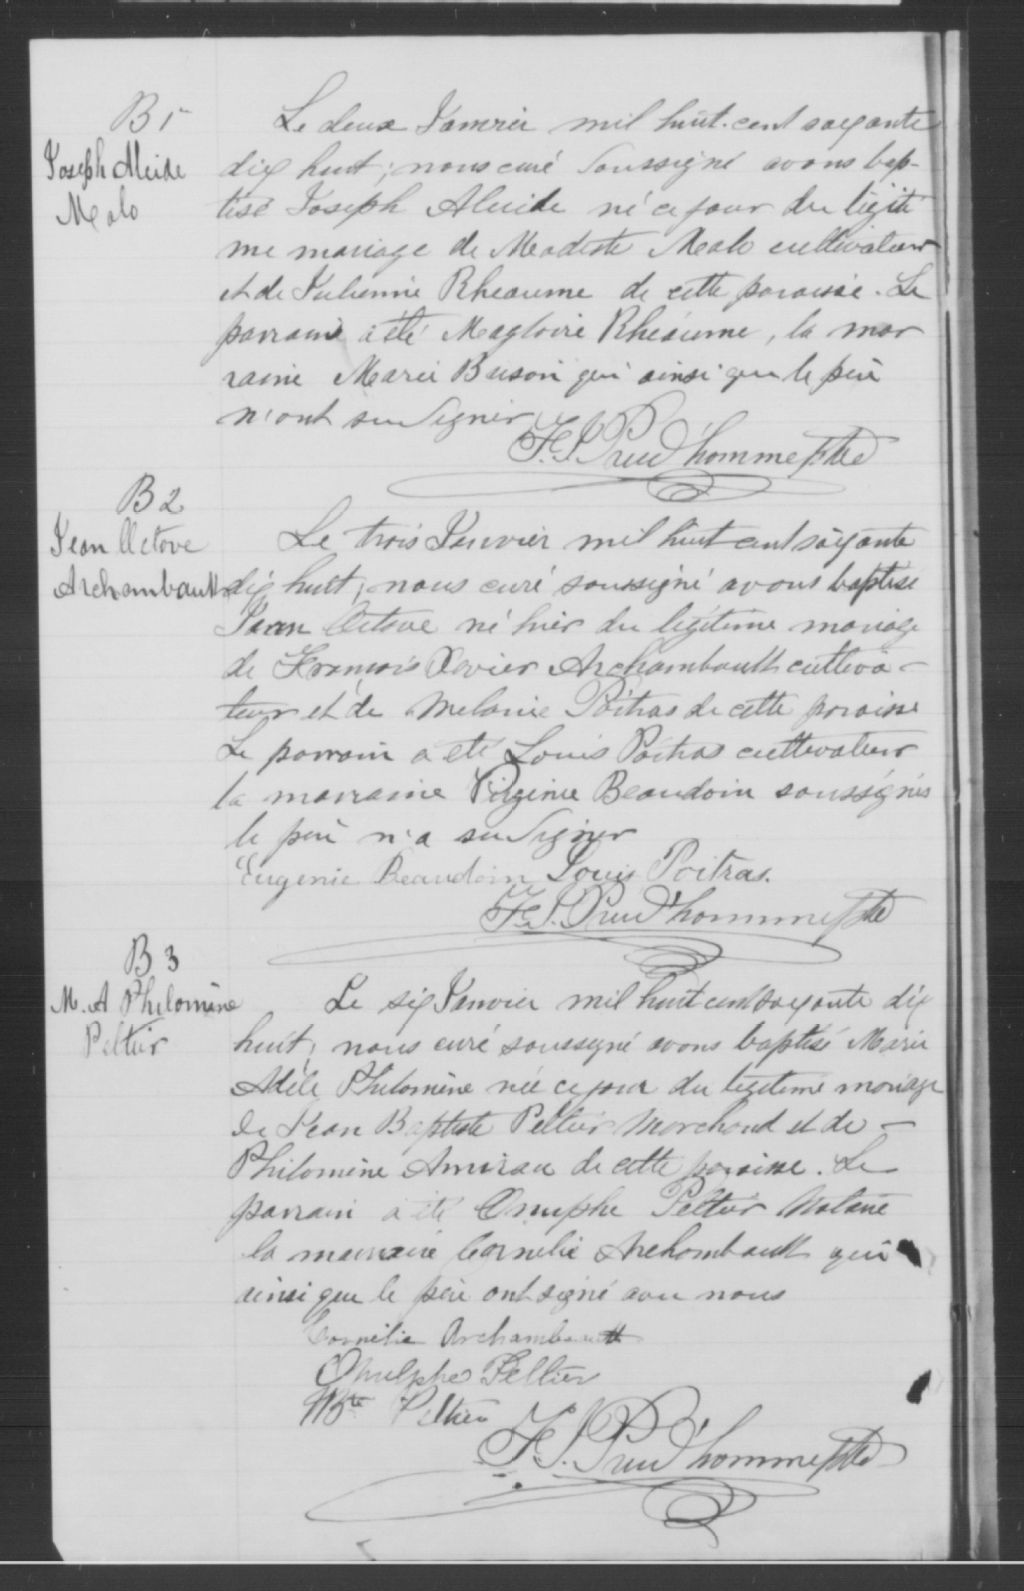 B 1
Joseph Alcide
Malo
Le deux Janvier mil huit-cent soixante
dix huit; nous curé soussigné avons bap-
tisé Joseph Alcide né ce jour du légiti
me mariage de Modeste Malo cultivateur
et de Julienne Rheaume de cette paroisse. Le
parrain a été Magloire Rhéaume, la mar
raine Marie Buison qui ainsi que le père
n'ont su signer
F. S. Prud'homme Ptre
B 2
Jean Octave
Archambault
Le trois Janvier mil huit cent soixante
dix huit; nous curé soussigné avons baptisé
Jean Octave né hier du légitime mariage
de François Xavier Archambault cultiva-
teur et de Melanie Poitras de cette paroisse
Le parrain a été Louis Poitras cultivateur
la marraine Virginie Beaudoin soussignés
le père n'a su signer
Eugenie Beaudoin Louis Poitras.
F. S. Prud'homme Ptre
B 3
M. A Philomène
Peltier
Le six Janvier mil huit cent soixante dix
huit; nous curé soussigné avons baptisé Marie
Adèle Philomène née ce jour du legitime mariage
de Jean Baptiste Peltier Marchand et de -
Philomène de cette paroisse. Le
parrain a été Onulphe Peltier Notaire
la marraine Cornelie Archambault qui
ainsi que le père ont signé avec nous
Cornélie Archambault
Onulphe Peltier
JBte Peltier
F. S. Prud'homme Ptre